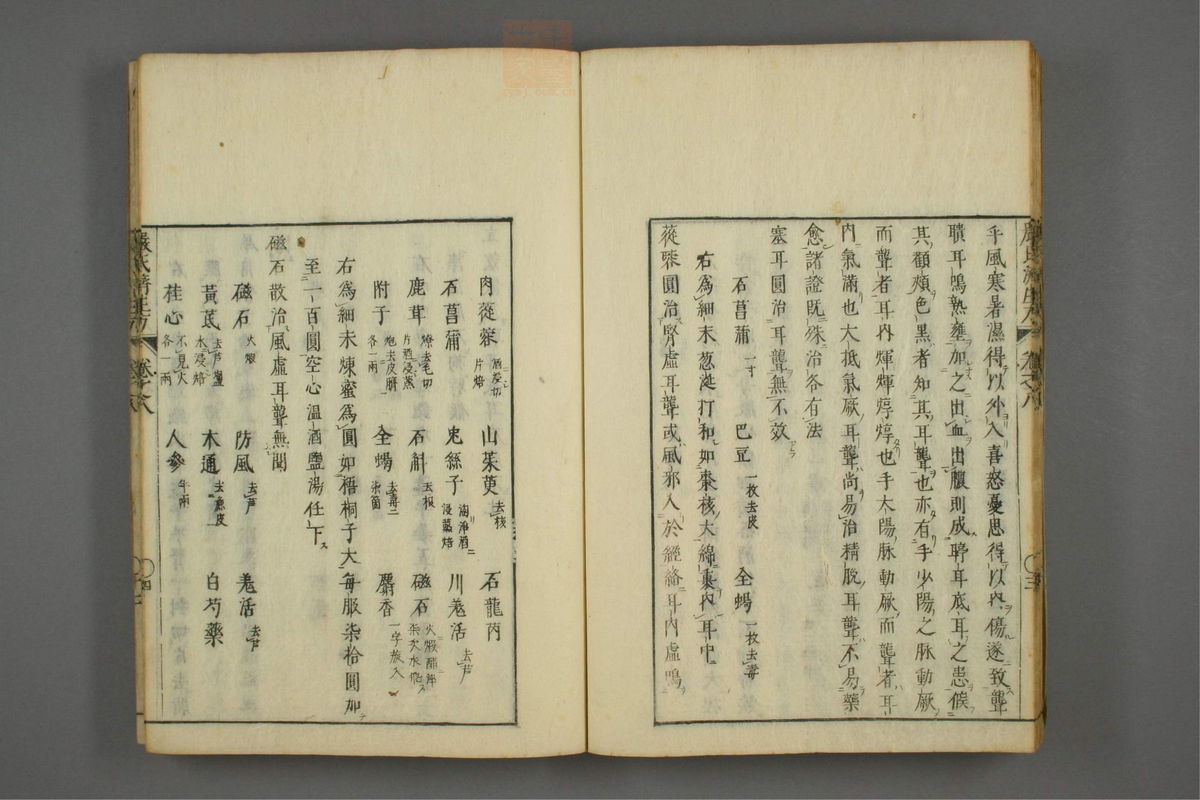 乎風寒暑濕得以外入喜怒憂思得以內傷遂致聾
聵耳鳴熱壅加之出血出膿則成聤耳底耳之患候
其顴頰色黑者知其耳聾也亦有手少陽之脉動厥
而聾者耳內煇煇焞焞也手太陽脉動厥而聾者耳
內氣滿也大抵氣厥耳聾尚易治精脫耳聾不易藥
愈諸證既殊治各有法
塞耳圓治耳聾無不效
石菖蒲 一寸 巴豆 一枚去皮 全蝎 一枚去毒
右為細末葱涎打和如棗核大綿裹內耳中
蓯蓉圓治腎虛耳聾或風邪入於經絡耳內虛鳴
肉蓯蓉 酒浸切片焙 山茱萸 去核 石龍芮
石菖蒲 兎絲子 淘淨酒浸蒸焙 川羗活 去芦
鹿茸 燎去毛切片酒浸蒸 石斛 去根 磁石 火煅醋淬柒次水飛
附子 炮去皮臍各一兩 全蝎 去毒二柒箇 麝香 一字旋入
右為細末煉蜜為圓如梧桐子大每服柒拾圓加
至一百圓空心溫酒鹽湯任下
磁石散治風虛耳聾無聞
磁石 火煅 防風 去芦 羗活 去芦
黃芪 去芦鹽水浸焙 木通 去麄皮 白芍藥
桂心 不見火各一兩 人參 半兩
嚴氏濟生方 卷之八